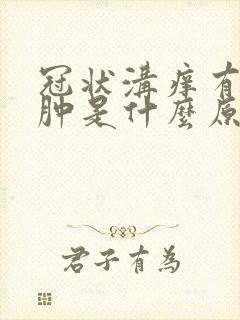 冠状溝痒有
肿是什麼原
君子有為